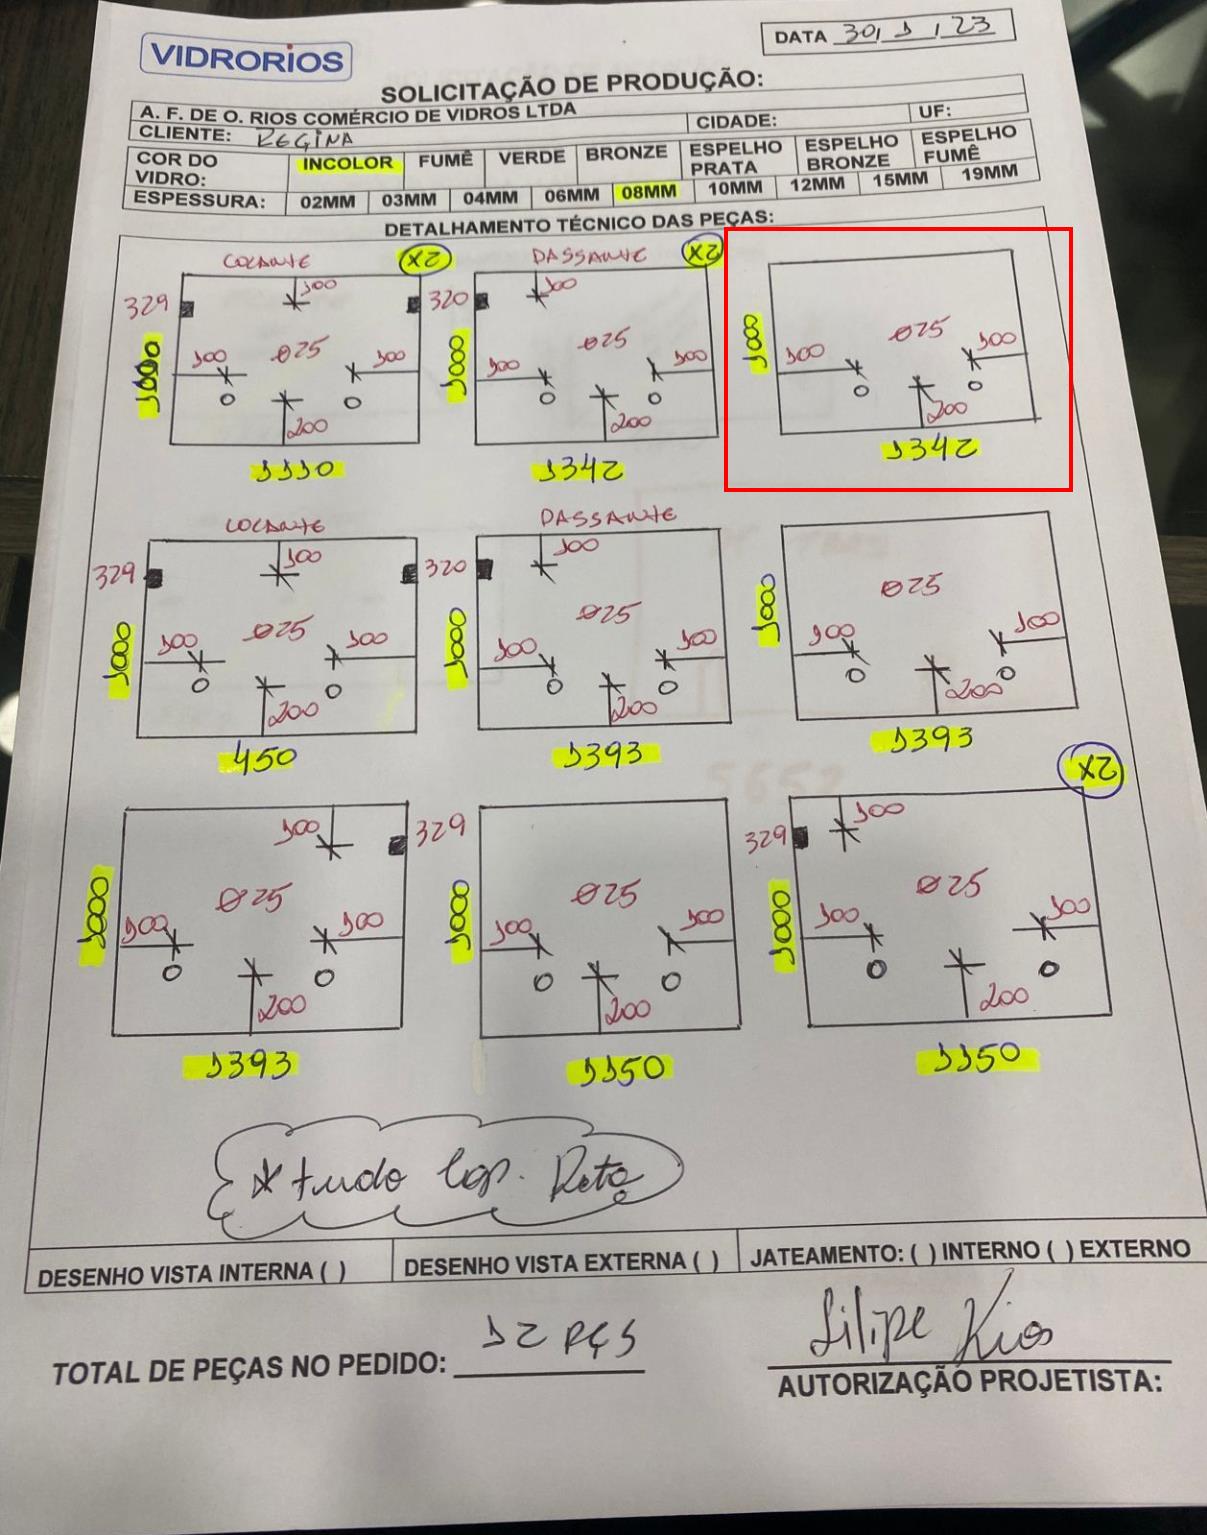 VIDRORIOS
DATA 30, 1, 23
SOLICITAÇÃO DE PRODUÇÃO:
A. F. DE O. RIOS COMÉRCIO DE VIDROS LTDA
CLIENTE: REGINA CIDADE: UF:
COR DO VIDRO: INCOLOR FUMÊ VERDE BRONZE ESPELHO PRATA ESPELHO BRONZE ESPELHO FUMÊ
ESPESSURA: 02MM 03MM 04MM 06MM 08MM 10MM 12MM 15MM 19MM
DETALHAMENTO TÉCNICO DAS PEÇAS:
COLANTE 2X
329 100
1000 100 Ø25 100
200
1110
PASSANTE 2X
320 100
1000 100 Ø25 100
200
1342
1000 100 Ø25 100
200
1342
COLANTE
329 100
1000 100 Ø25 100
200
450
PASSANTE
320 100
1000 100 Ø25 100
200
1393
1000 100 Ø25 100
200
1393
100 329
1000 100 Ø25 100
200
1393
1000 100 Ø25 100
200
1150
2X
329 100
1000 100 Ø25 100
200
1150
* tudo lap. Reto
DESENHO VISTA INTERNA ( ) DESENHO VISTA EXTERNA ( ) JATEAMENTO: ( ) INTERNO ( ) EXTERNO
TOTAL DE PEÇAS NO PEDIDO: 12 PÇS
Filipe Rios
AUTORIZAÇÃO PROJETISTA: